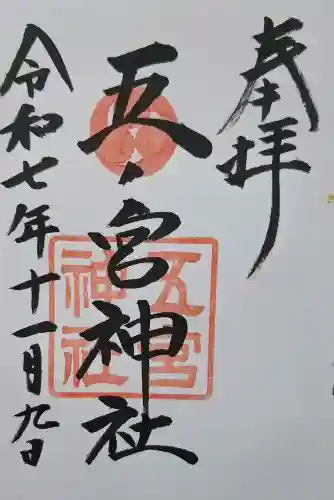 奉拝
五ノ宮神社
五宮神社
令和七年十一月九日